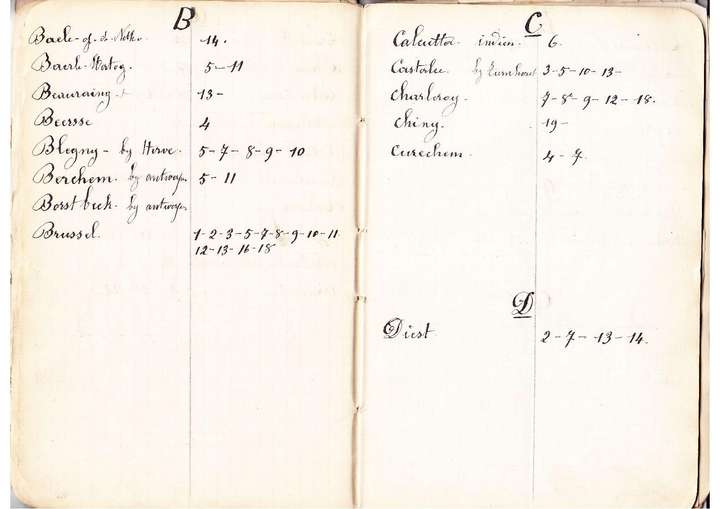 B
Baele-op-d-Nethe. 14.
Baerle-Hertog. 5-11
Beauraing- 13-
Beersse 4
Blegny- by Herve. 5-7-8-9-10
Berchem. by antwerpen 5-11
Borstbeek. by antwerpen
Brussel. 1-2-3-5-7-8-9-10-11
12-13-16-18
C
Calcutta indien. 6.
Casterlee. by Turnhout 3-5-10-13-
Charleroy- 7-8-9-12-18.
Chiny. 19-
Cureghem. 4-7.
D
Diest 2-7-13-14.